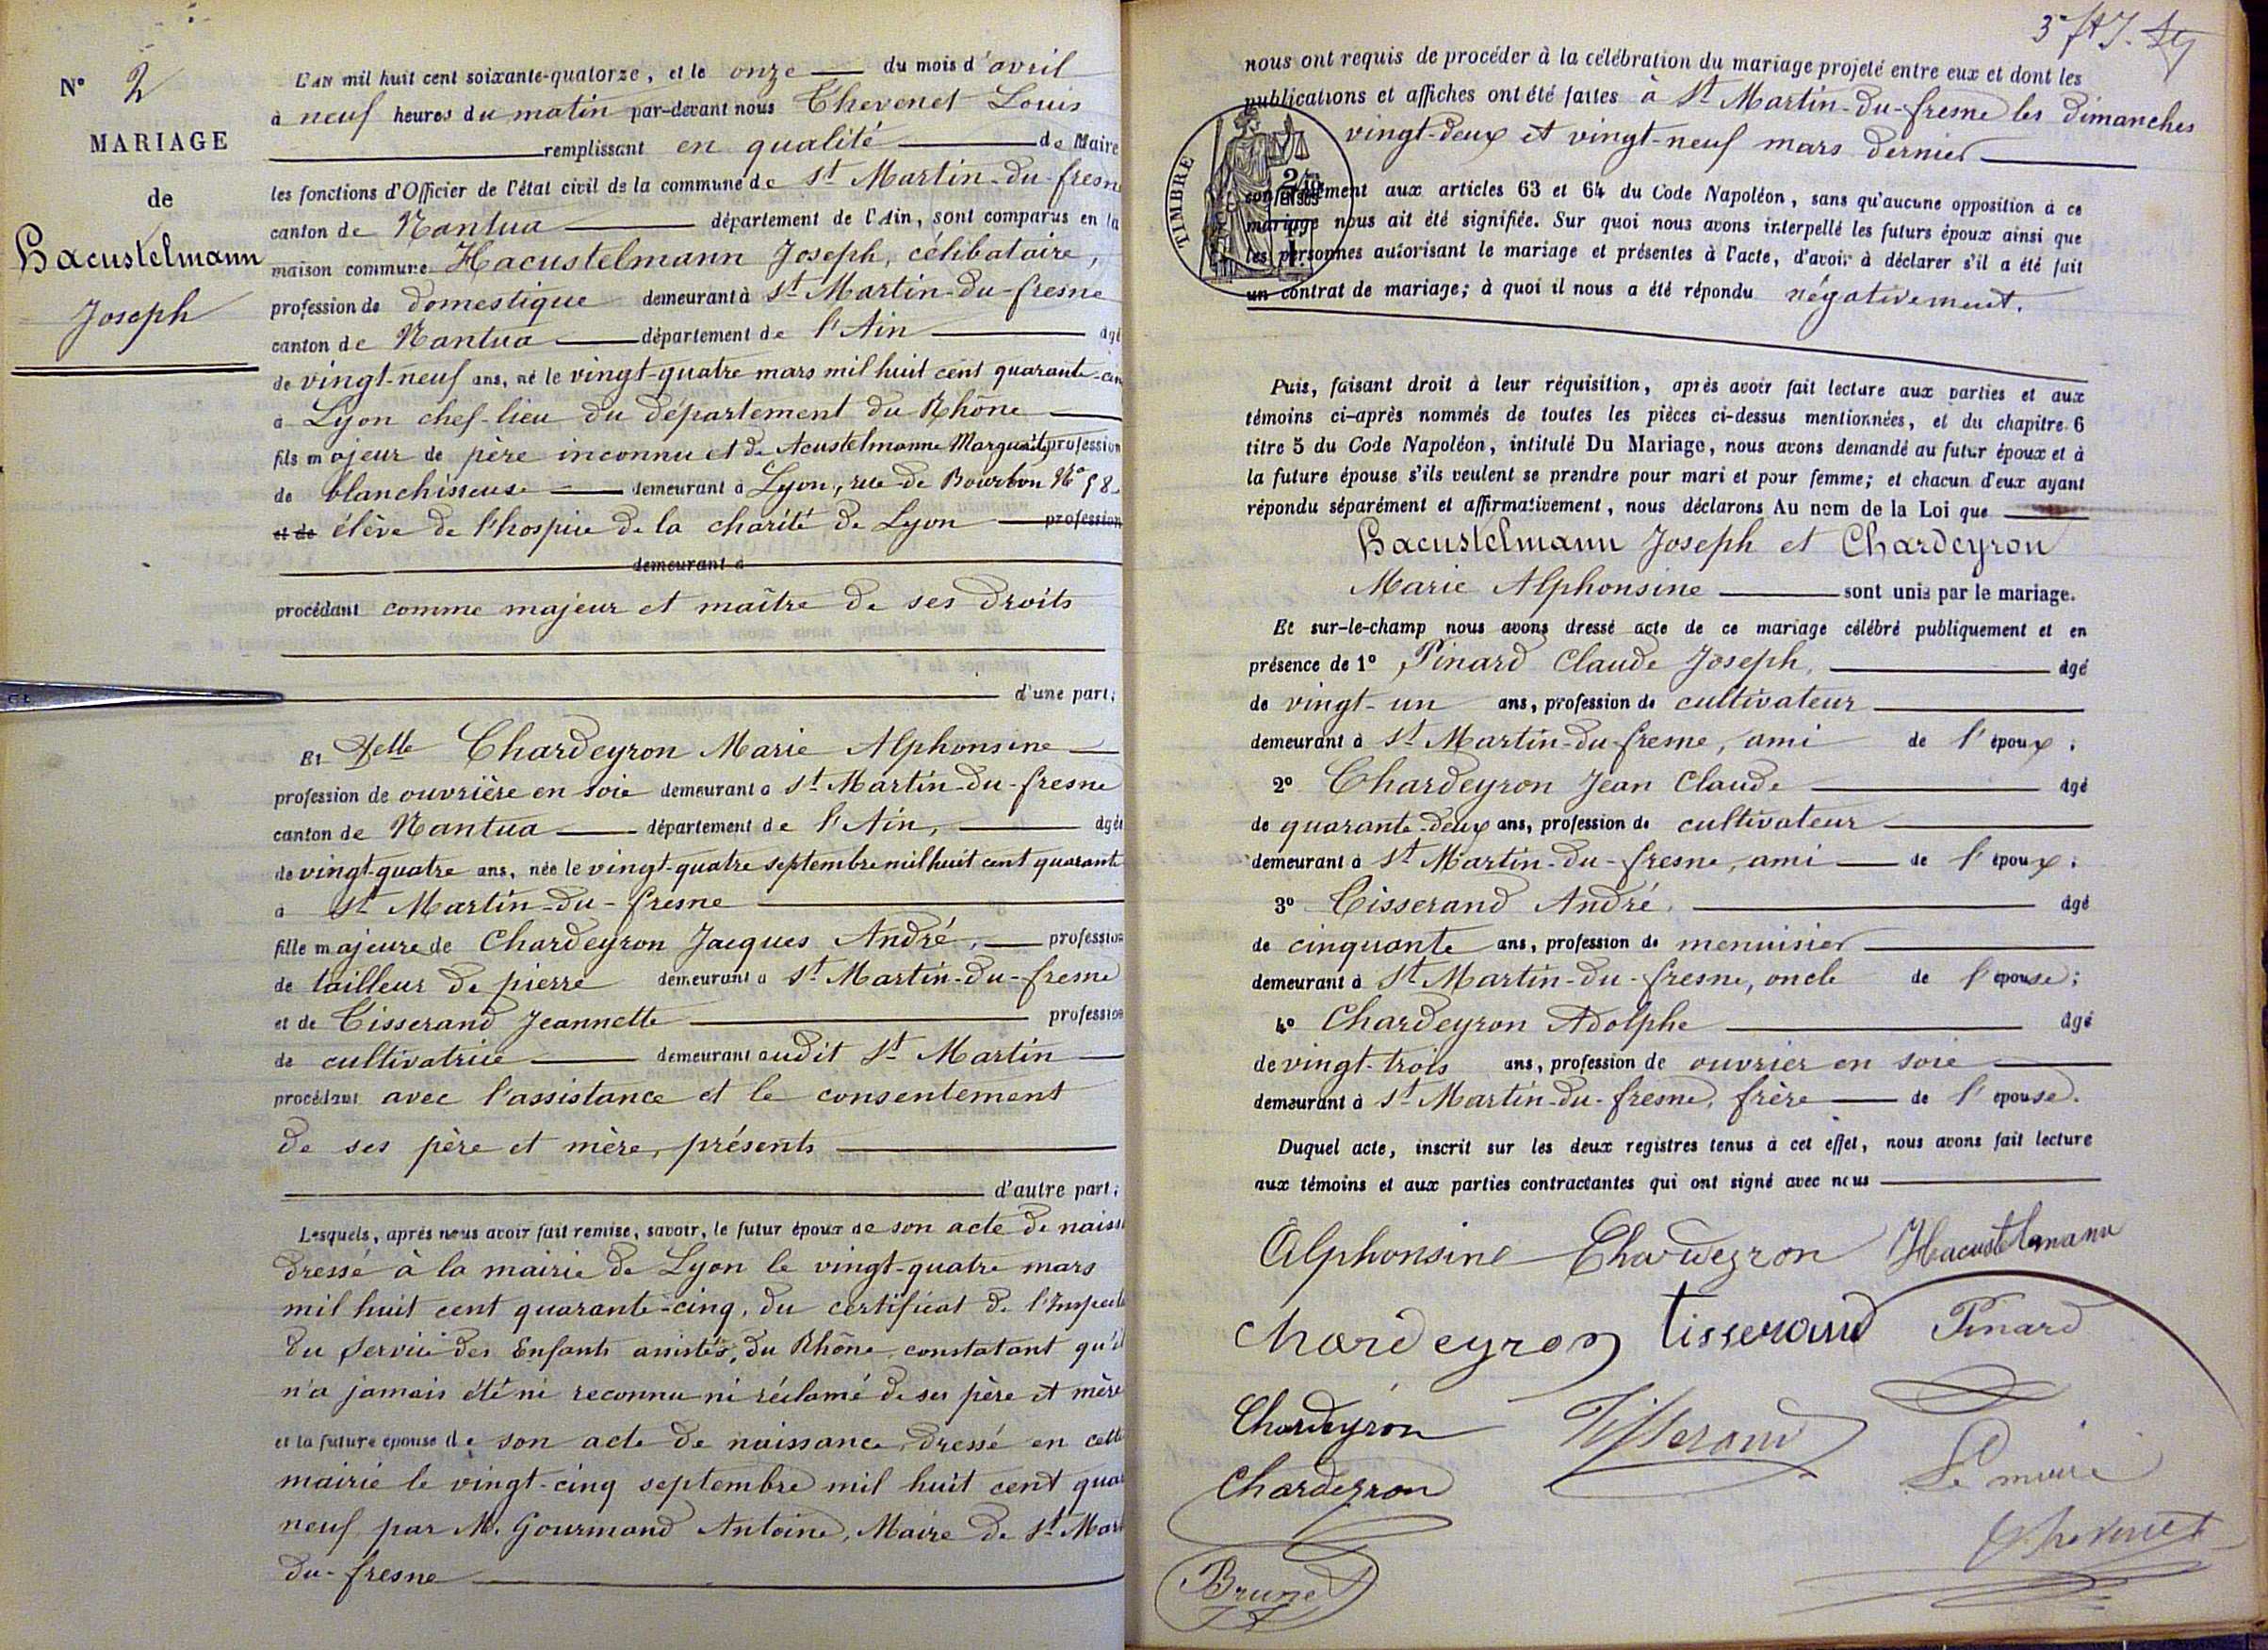 N° 2
MARIAGE
de
Hacustelmann
Joseph
L'AN mil huit cent soixante-quatorze, et le onze du mois d'avril
à neuf heures du matin par-devant nous Chevenet Louis
remplissant en qualité de Maire
les fonctions d'Officier de l'état civil de la commune de St Martin-du-fresne
canton de Nantua département de l'Ain, sont comparus en la
maison commune Hacustelmann Joseph, célibataire,
profession de domestique demeurant à St Martin-du-fresne
canton de Nantua département de l'Ain âgé
de vingt-neuf ans, né le vingt-quatre mars mil huit cent quarante-cin
à Lyon chef-lieu du département du Rhône
fils majeur de père inconnu et de Acustelmanne Marguerite profession
de blanchisseuse demeurant à Lyon, rue de Bourbon N°
et de élève de l'hospice de la charité de Lyon profession
demeurant à
procédant comme majeur et maître de ses droits
d'une part;
Et Delle Chardeyron Marie Alphonsine
profession de ouvrière en soie demeurant à St Martin-du-fresne
canton de Nantua département de l'Ain, âgée
de vingt-quatre ans, née le vingt-quatre septembre mil huit cent quarante
à St Martin-du-fresne
fille majeure de Chardeyron Jacques André, profession
de tailleur de pierre demeurant à St Martin-du-fresne
et de Tisserand Jeannette profession
de cultivatrice demeurant audit St Martin
procédant avec l'assistance et le consentement
de ses père et mère, présents
d'autre part;
Lesquels, après nous avoir fait remise, savoir, le futur époux de son acte de naiss
dressé à la mairie de Lyon le vingt-quatre mars
mil huit cent quarante-cinq, du certificat de l'Inspect
du service des Enfants assistés, du Rhône, constatant qu'il
n'a jamais été ni reconnu ni réclamé de ses père et mère
et la future épouse de son acte de naissance, dressé en cette
mairie le vingt-cinq septembre mil huit cent qua
neuf par M. Gourmand Antoine, Maire de St Mar
du-fresne
nous ont requis de procéder à la célébration du mariage projeté entre eux et dont les
publications et affiches ont été faites à St Martin-du-fresne les dimanches
vingt-deux et vingt-neuf mars dernier
TIMBRE
conformément aux articles 63 et 64 du Code Napoléon, sans qu'aucune opposition à ce
mariage nous ait été signifiée. Sur quoi nous avons interpellé les futurs époux ainsi que
les personnes autorisant le mariage et présentes à l'acte, d'avoir à déclarer s'il a été fait
un contrat de mariage; à quoi il nous a été répondu négativement.
Puis, faisant droit à leur réquisition, après avoir fait lecture aux parties et aux
témoins ci-après nommés de toutes les pièces ci-dessus mentionnées, et du chapitre 6
titre 5 du Code Napoléon, intitulé Du Mariage, nous avons demandé au futur époux et à
la future épouse s'ils veulent se prendre pour mari et pour femme; et chacun d'eux ayant
répondu séparément et affirmativement, nous déclarons Au nom de la Loi que
Hacustelmann Joseph et Chardeyron
Marie Alphonsine sont unis par le mariage.
Et sur-le-champ nous avons dressé acte de ce mariage célébré publiquement et en
présence de 1° Pinard Claude Joseph, âgé
de vingt-un ans, profession de cultivateur
demeurant à St Martin-du-fresne, ami de l'époux;
2° Chardeyron Jean Claude âgé
de quarante-deux ans, profession de cultivateur
demeurant à St Martin-du-fresne, ami de l'époux;
3° Tisserand André, âgé
de cinquante ans, profession de menuisier
demeurant à St Martin-du-fresne, oncle de l'épouse;
4° Chardeyron Adolphe âgé
de vingt-trois ans, profession de ouvrier en soie
demeurant à St Martin-du-fresne, frère de l'épouse.
Duquel acte, inscrit sur les deux registres tenus à cet effet, nous avons fait lecture
aux témoins et aux parties contractantes qui ont signé avec nous
Alphonsine Chardeyron Hacustelmann
Chardeyron tisserand Pinard
Chardeyron Tisserand
Chardeyron Le maire
Brunet Chevenet